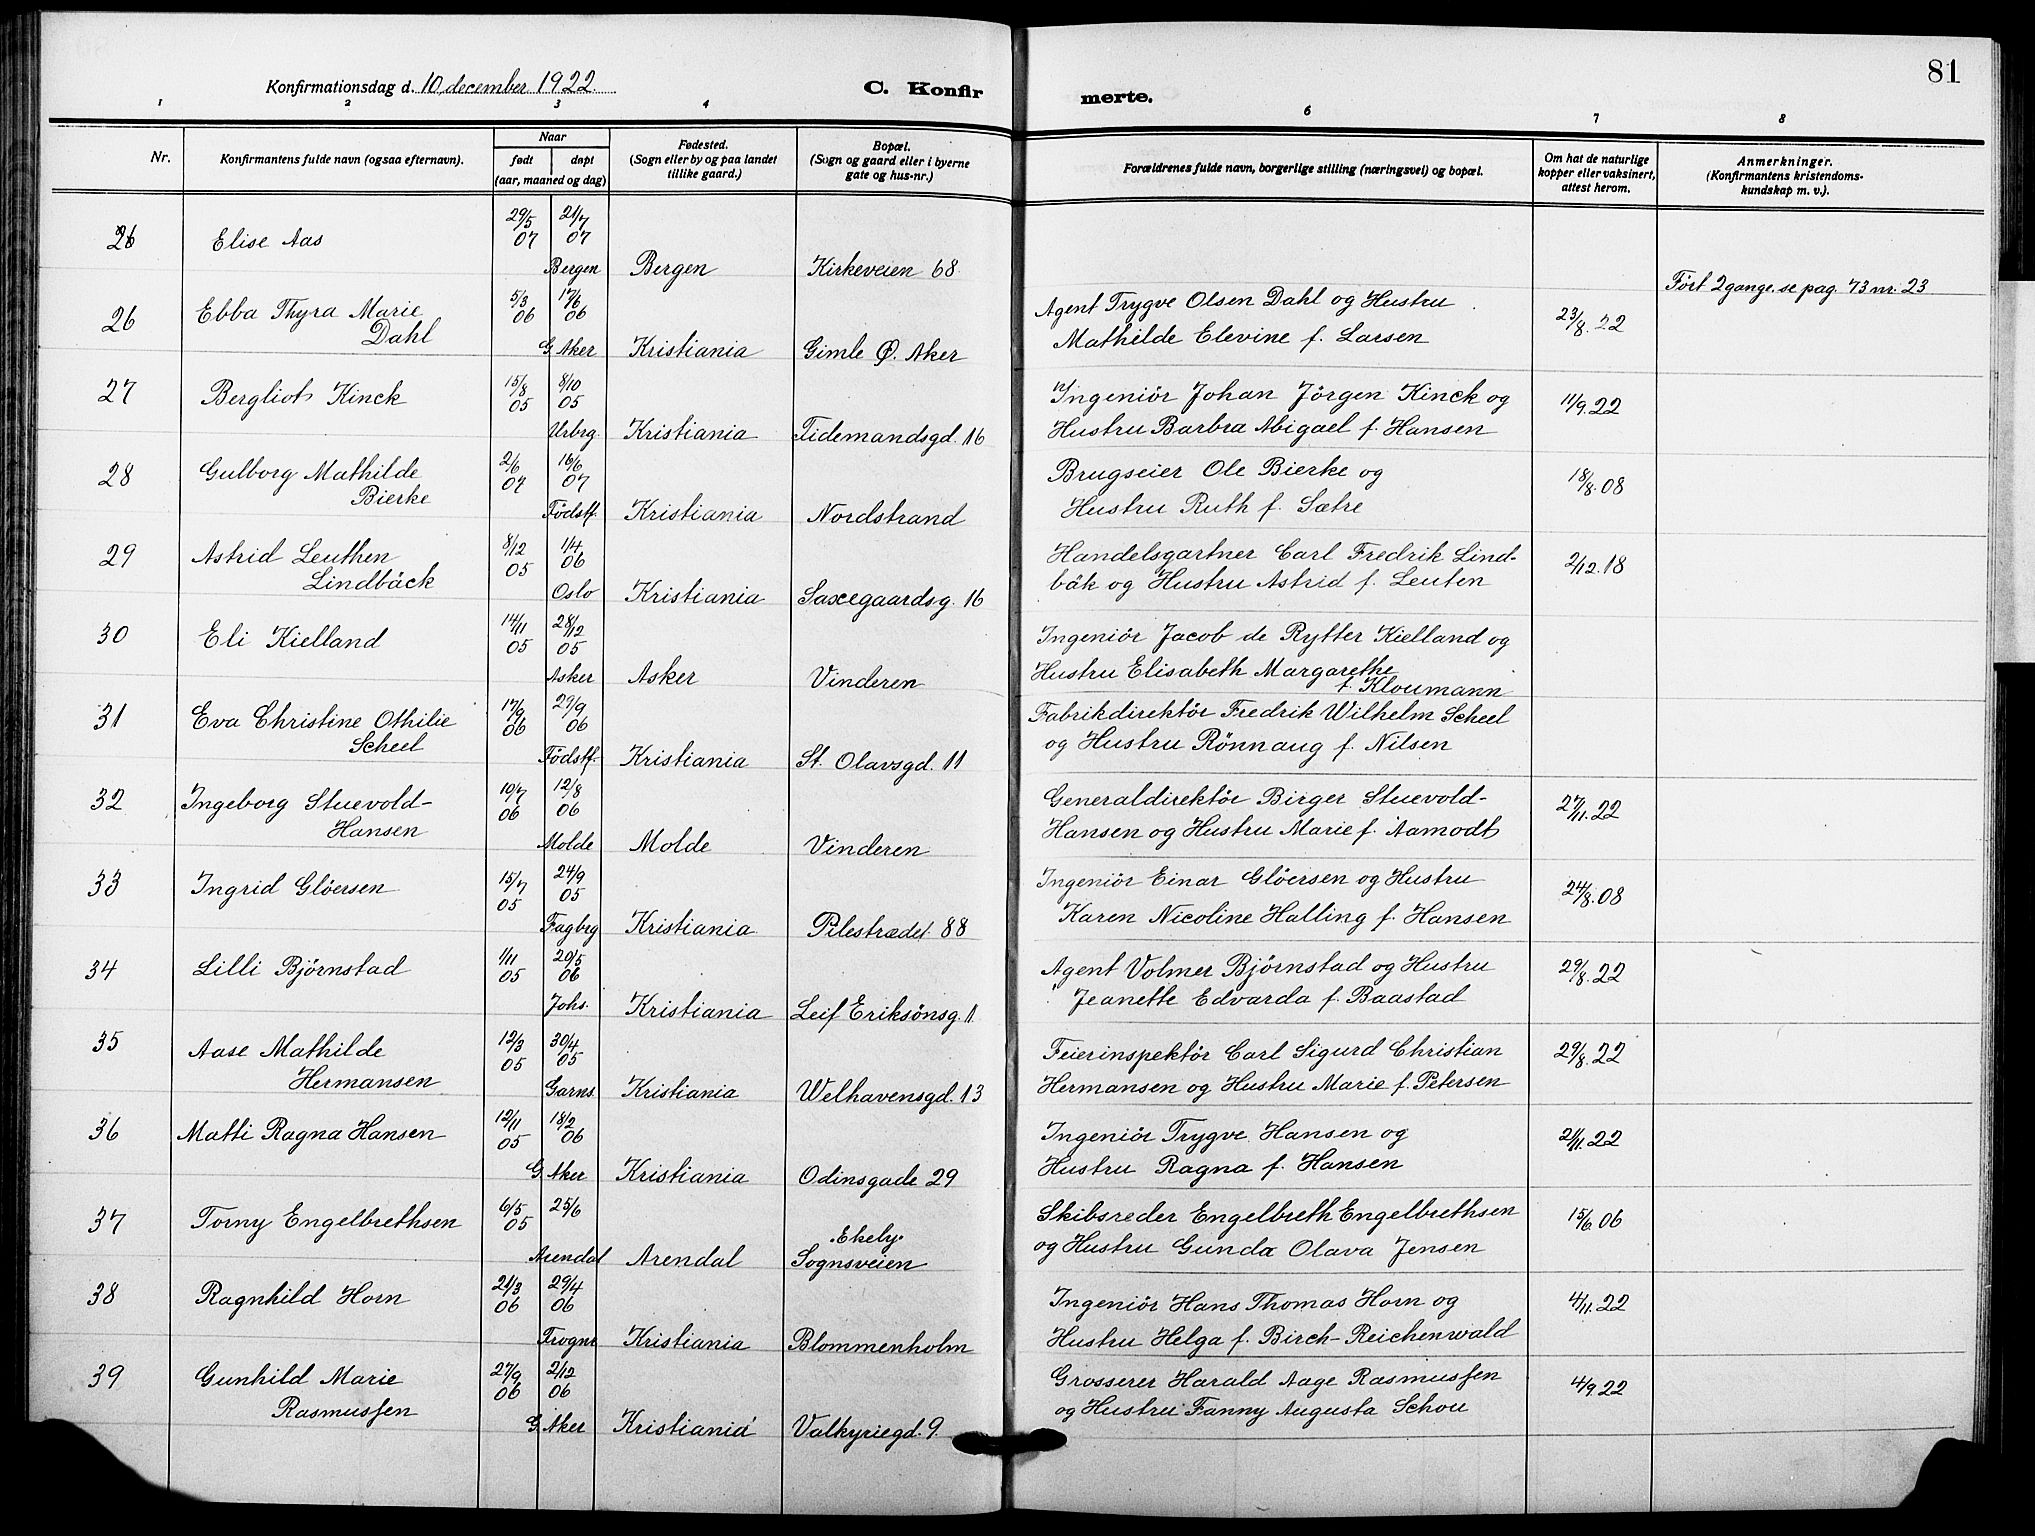 81
Konfirmationsdag d. 10 december 1922.
C. Konfirmerte.
1 2 3 4 6 7 8
Nr.
Konfirmantens fulde navn (ogsaa efternavn).
Naar
født døpt
(aar, maaned og dag)
Fødested.
(Sogn eller by og paa landet
tillike gaard.)
Bopæl.
(Sogn og gaard eller i byerne
gate og hus-nr.)
Forældrenes fulde navn, borgerlige stilling (næringsvei) og bopæl.
Om hat de naturlige
kopper eller vaksinert,
attest herom.
Anmerkninger.
(Konfirmantens kristendoms-
kundskap m. v.).
29/5 21/7
26 Elise Aas 07 07
Bergen Bergen Kirkeveien 68
Ført 2 gange. se pag. 73 nr. 23
Ebba Thyra Marie 5/3 17/6 Agent Trygve Olsen Dahl og Hustru
26 Dahl 06 06 Mathilde Elevine f. Larsen 23/8. 22
G. Aker Kristiania Gimle Ø. Aker
27 Bergliot Kinck 15/8 8/10 Ingeniör Johan Jörgen Kinck og 11/9. 22
05 05 Hustru Barbra Abigael f. Hansen
Urbrg. Kristiania Tidemandsgd. 16
28 Gulborg Mathilde 2/6 16/6 Brugseier Ole Bierke og 18/8. 08
Bierke 07 07 Hustru Ruth f. Sætre
Födstf. Kristiania Nordstrand
29 Astrid Leuthen 8/12 1/4 Handelsgartner Carl Fredrik Lind- 2/12. 18
Lindbäck 05 06 båk og Hustru Astrid f. Leuten
Oslo Kristiania Saxegaardsg. 16
30 Eli Kielland 14/11 28/12 Ingeniör Jacob de Rytter Kielland og
05 05 Hustru Elisabeth Margarethe
f. Kloumann
Asker Asker Vinderen
31 Eva Christine Othilie 17/9 29/9 Fabrikdirektör Fredrik Wilhelm Scheel
Scheel 06 06 og Hustru Rönnaug f. Nilsen
Födstf. Kristiania St. Olavsgd. 11
32 Ingeborg Stuevold- 10/7 12/8 Generaldirektör Birger Stuevold- 27/11. 22
Hansen 06 06 Hansen og Hustru Marie f. Aamodt
Molde Molde Vinderen
33 Ingrid Glöersen 15/7 24/9 Ingeniör Einar Glöersen og Hustru 24/8. 08
05 05 Karen Nicoline Halling f. Hansen
Fagbrg Kristiania Pilestrædet 88
34 Lilli Björnstad 1/11 20/5 Agent Volmer Björnstad og Hustru 29/8. 22
05 06 Jeanette Edvarda f. Baastad
Johs. Kristiania Leif Eriksönsg. 1
35 Aase Mathilde 12/3 30/4 Feierinspektör Carl Sigurd Christian 29/8. 22
Hermansen 05 05 Hermansen og Hustru Marie f. Petersen
Garns. Kristiania Welhavensgd. 13
36 Matti Ragna Hansen 12/11 18/2 Ingeniör Trygve Hansen og 21/11. 22
05 06 Hustru Ragna f. Hansen
G. Aker Kristiania Odinsgade 29
37 Torny Engelbrethsen 6/5 25/6 Skibsreder Engelbreth Engelbrethsen 15/6. 06
05 Ekely. og Hustru Gunda Olava Jensen
Arendal Arendal Sognsveien
38 Ragnhild Horn 21/3 29/4 Ingeniör Hans Thomas Horn og 4/11. 22
06 06 Hustru Helga f. Birch-Reichenwald
Frogner Kristiania Blommenholm
39 Gunhild Marie 27/9 2/12 Grosserer Harald Aage Rasmussen 4/9. 22
Rasmussen 06 06 og Hustru Fanny Augusta Schou
G. Aker Kristiania Valkyriegd. 9.